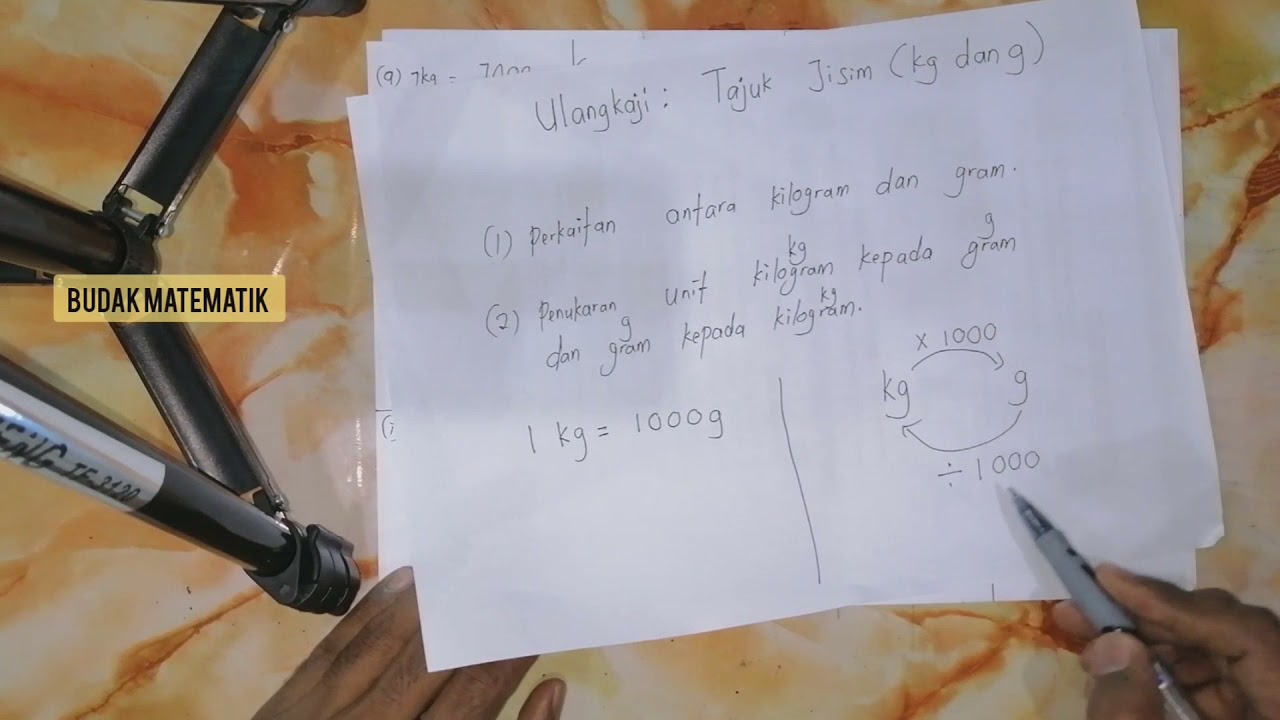 (a) 7kg = 7000
Ulangkaji : Tajuk Jisim (kg dan g)
(1) Perkaitan antara kilogram dan gram.
kg g
(2) Penukaran unit kilogram kepada gram
g kg
dan gram kepada kilogram.
x 1000
kg g
÷ 1000
1 kg = 1000g
BUDAK MATEMATIK